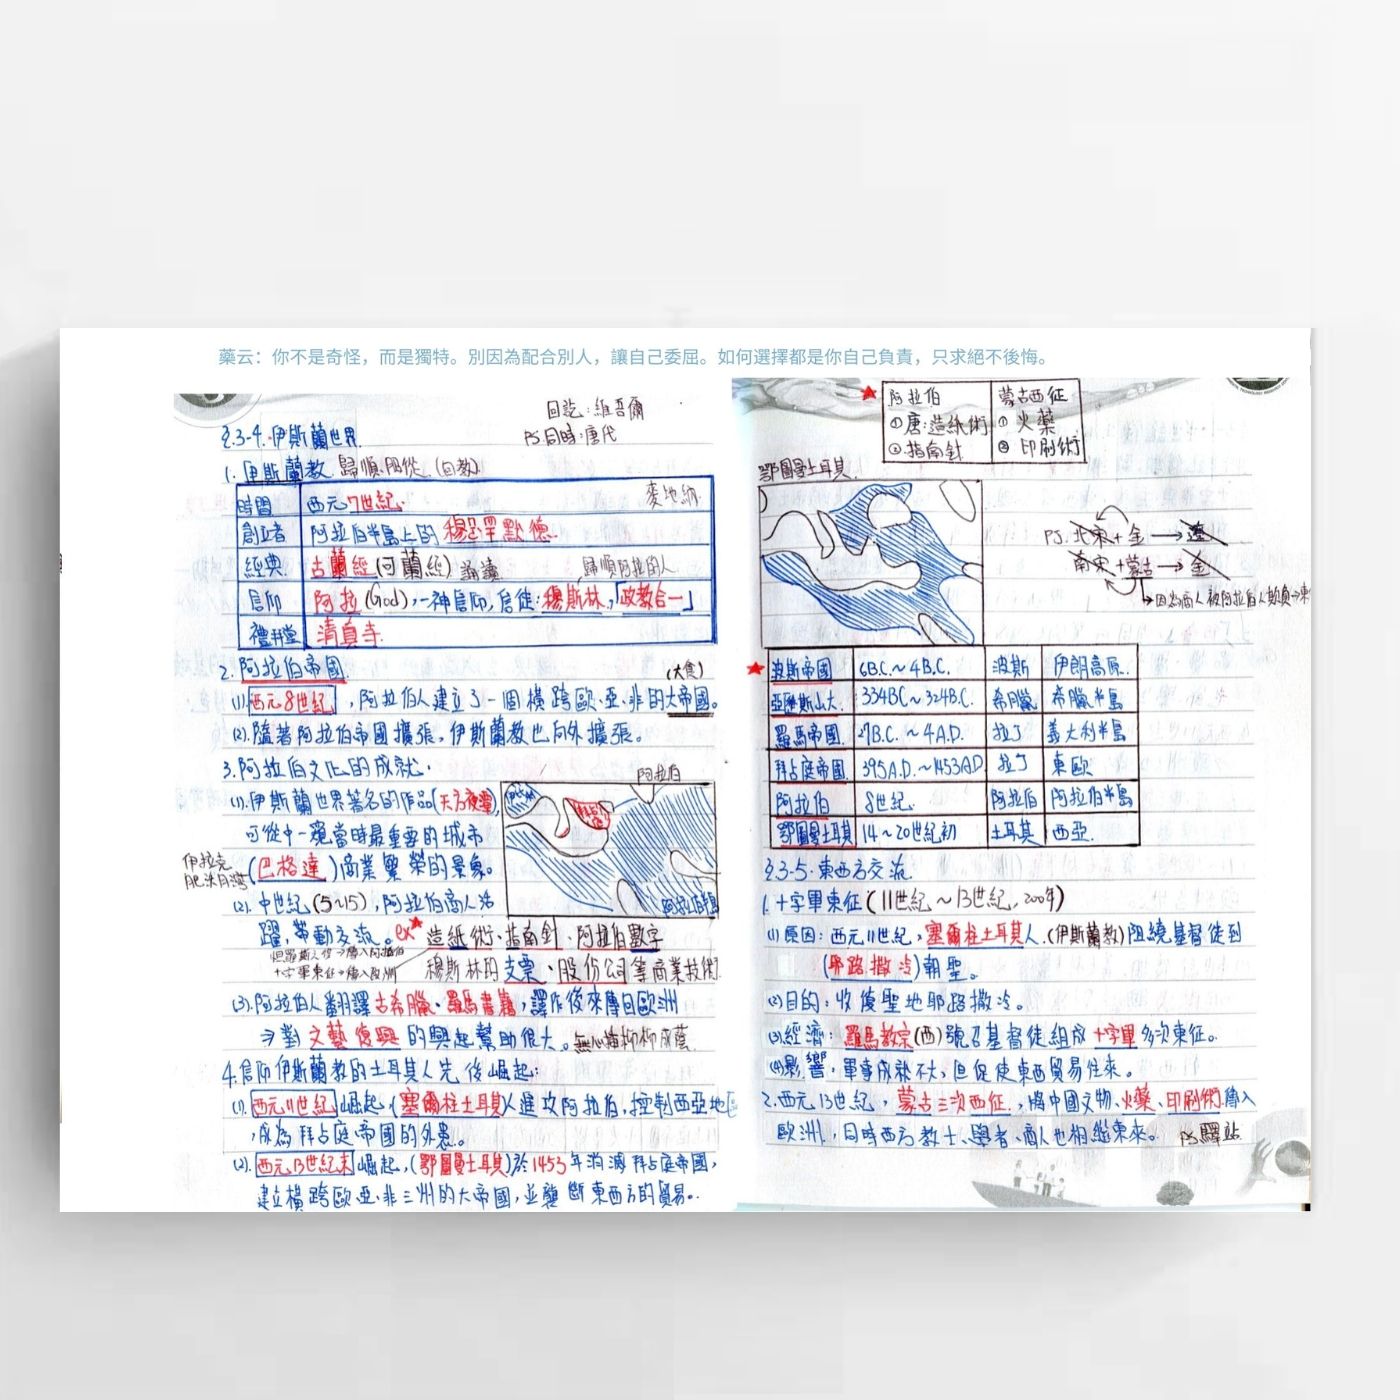 藥云：你不是奇怪，而是獨特。別因為配合別人，讓自己委屈。如何選擇都是你自己負責，只求絕不後悔。
回訖：維吾爾
PS.同時：唐代
§.3-4.伊斯蘭世界.
1.伊斯蘭教 歸順、服從.(回教)
時間 西元7世紀. 麥地納
創立者 阿拉伯半島上的穆罕默德.
經典 古蘭經(可蘭經) 誦讀 歸順阿拉的人
信仰 阿拉(God),一神信仰,信徒:穆斯林,「政教合一」
禮拜堂 清真寺.
2.阿拉伯帝國. (大食)
(1).西元8世紀,阿拉伯人建立了一個橫跨歐、亞、非的大帝國。
(2).隨著阿拉伯帝國擴張,伊斯蘭教也向外擴張。
3.阿拉伯文化的成就.
(1).伊斯蘭世界著名的作品(天方夜譚),
可從中一窺當時最重要的城市
(巴格達)商業繁榮的景象。
伊拉克
肥沃月灣
阿拉伯
阿拉伯半島
(2).中世紀(5~15),阿拉伯商人活
躍,帶動交流。ex 造紙術、指南針、阿拉伯數字
十字軍東征→傳入歐洲
穆斯林的支票、股份公司等商業技術.
(3).阿拉伯人翻譯古希臘、羅馬書籍,譯作後來傳回歐洲
⇒對文藝復興的興起幫助很大。無心插柳柳成蔭.
4.信仰伊斯蘭教的土耳其人先後崛起:
(1).西元11世紀崛起,(塞爾柱土耳其)人進攻阿拉伯,控制西亞地區
,成為拜占庭帝國的外患。
(2).西元13世紀末崛起,(鄂圖曼土耳其)於1453年消滅拜占庭帝國,
建立橫跨歐、亞、非三洲的大帝國,並壟斷東西方的貿易.
阿拉伯 蒙古西征
①唐:造紙術 ①火藥
②指南針 ②印刷術
鄂圖曼土耳其.
PS.北宋+金→遼
南宋+蒙古→金
波斯帝國 6B.C.~4B.C. 波斯 伊朗高原.
亞歷山大. 334BC~324B.C. 希臘 希臘半島
羅馬帝國. 27B.C.~4A.D. 拉丁 義大利半島
拜占庭帝國 395A.D.~1453A.D. 拉丁 東歐
阿拉伯 8世紀. 阿拉伯 阿拉伯半島
鄂圖曼土耳其 14~20世紀初 土耳其 西亞.
§.3-5.東西方交流.
1.十字軍東征(11世紀~13世紀,200年)
(1)原因:西元11世紀,塞爾柱土耳其人.(伊斯蘭教)阻繞基督徒到
(耶路撒冷)朝聖。
(2)目的:收復聖地耶路撒冷。
(3)經濟:羅馬教宗(西)號召基督徒組成十字軍多次東征。
(4)影響,軍事成就不大,但促使東西貿易往來。
2.西元13世紀,蒙古三次西征,將中國文物、火藥、印刷術傳入
歐洲,同時西方教士、學者、商人也相繼東來。PS.驛站